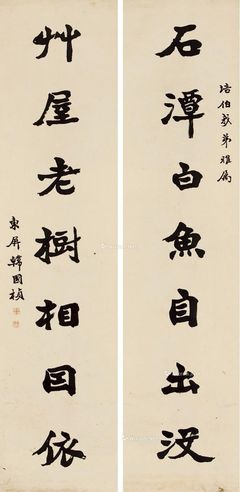 培伯弟雅屬
石潭白魚自出没
艸屋老樹相囙依
東屏韓國楨